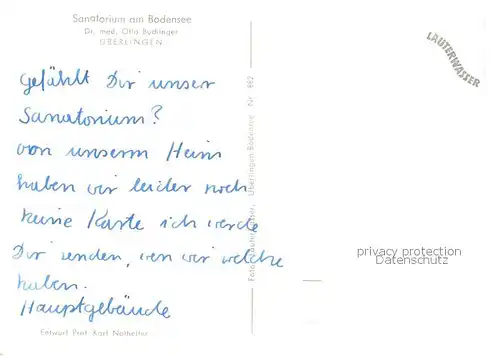 Sanatorium am Bodensee
Dr. med. Otto Buchinger
ÜBERLINGEN
LAUTERWASSER
gefählt Dir unser
Sanatorium?
von unserm Heim
haben wir leider noch
keine Karte ich werde
Dir senden, wen wir welche
haben.
Hauptgebäude
Foto Lauterwasser, Überlingen/Bodensee Nr. 882
privacy protection
Datenschutz
Entwurf Prof. Karl Nothelfer